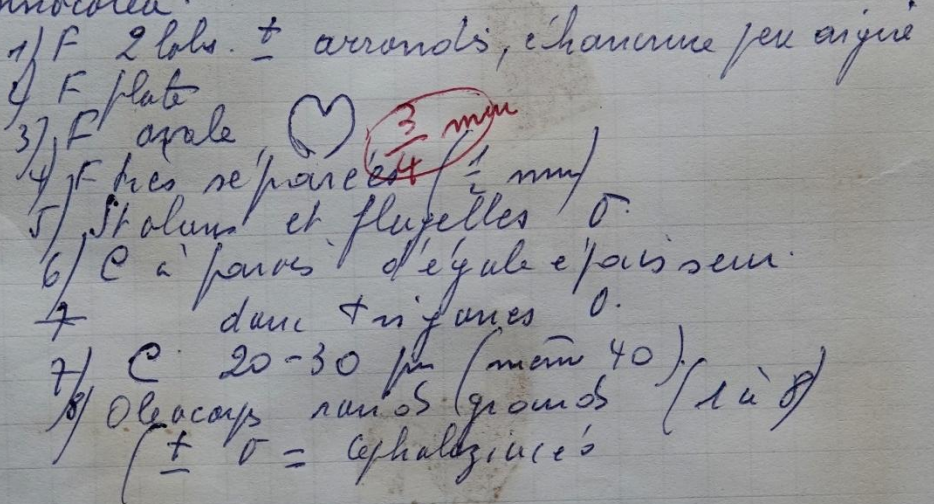 1) F 2 lobs. ± arrondis, échancrure peu aigüe
2) F plate
3) F ovale, 3/4 mm
4) F très séparées (1/2 mm)
5) Stolons et flagelles O.
6) C à parois d'égale épaisseur.
7 donc trigones O.
7) C 20-30 µm (même 40).
8) Oléocorps ronds (grands (1 à 8)
(± O = Cephaloziacés